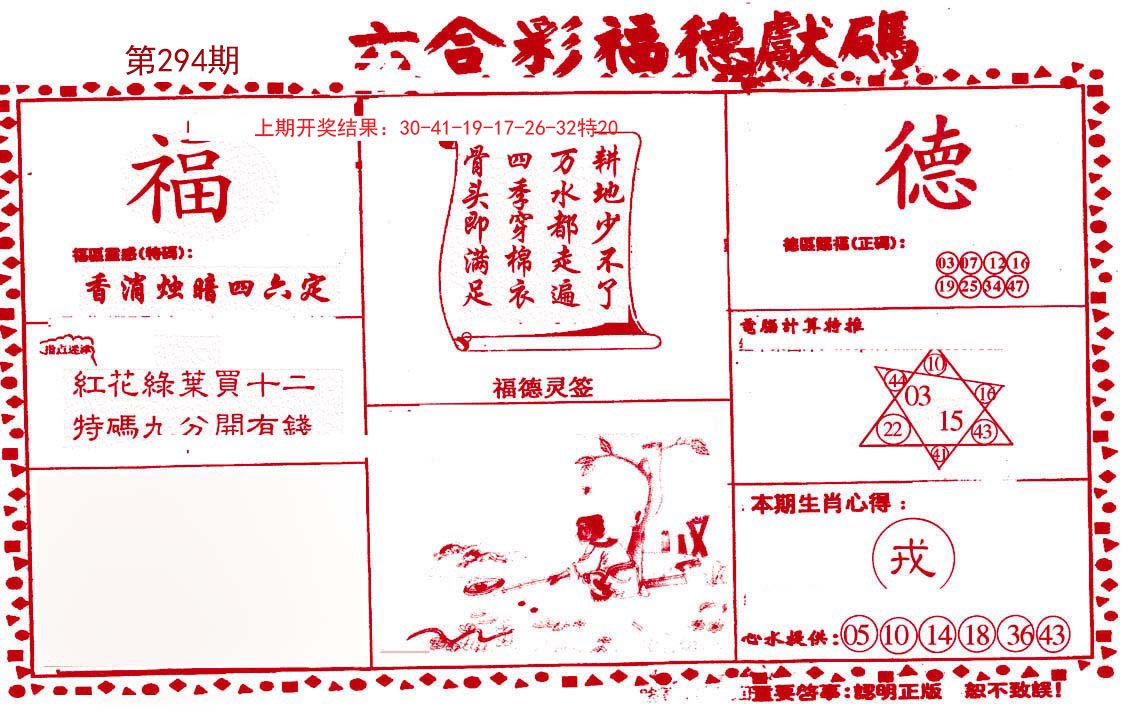 第294期
六合彩福德獻碼
上期开奖结果：30-41-19-17-26-32特20
福
福區靈感(特碼)：
香消烛暗四六定
指点迷津
紅花綠葉買十二
特碼九分開有錢
耕地少不了
万水都走遍
四季穿棉衣
骨头即满足
福德灵签
德
德區賜福(正碼)：
03 07 12 16
19 25 34 47
電腦計算特推
10
44 03 16
22 15 43
41
本期生肖心得：
戎
心水提供:05 10 14 18 36 43
重要啓事:認明正版 恕不致誤!